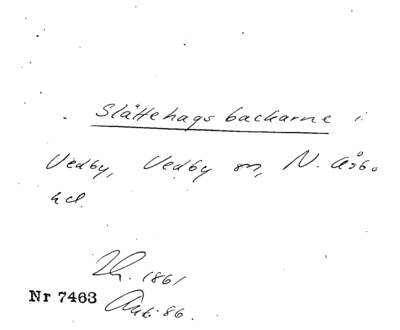 Slåttehags backarne i
Vedby, Vedby sn, N. Åsbo
hd.
Th. 1861
Nr 7463 Ant. 86.